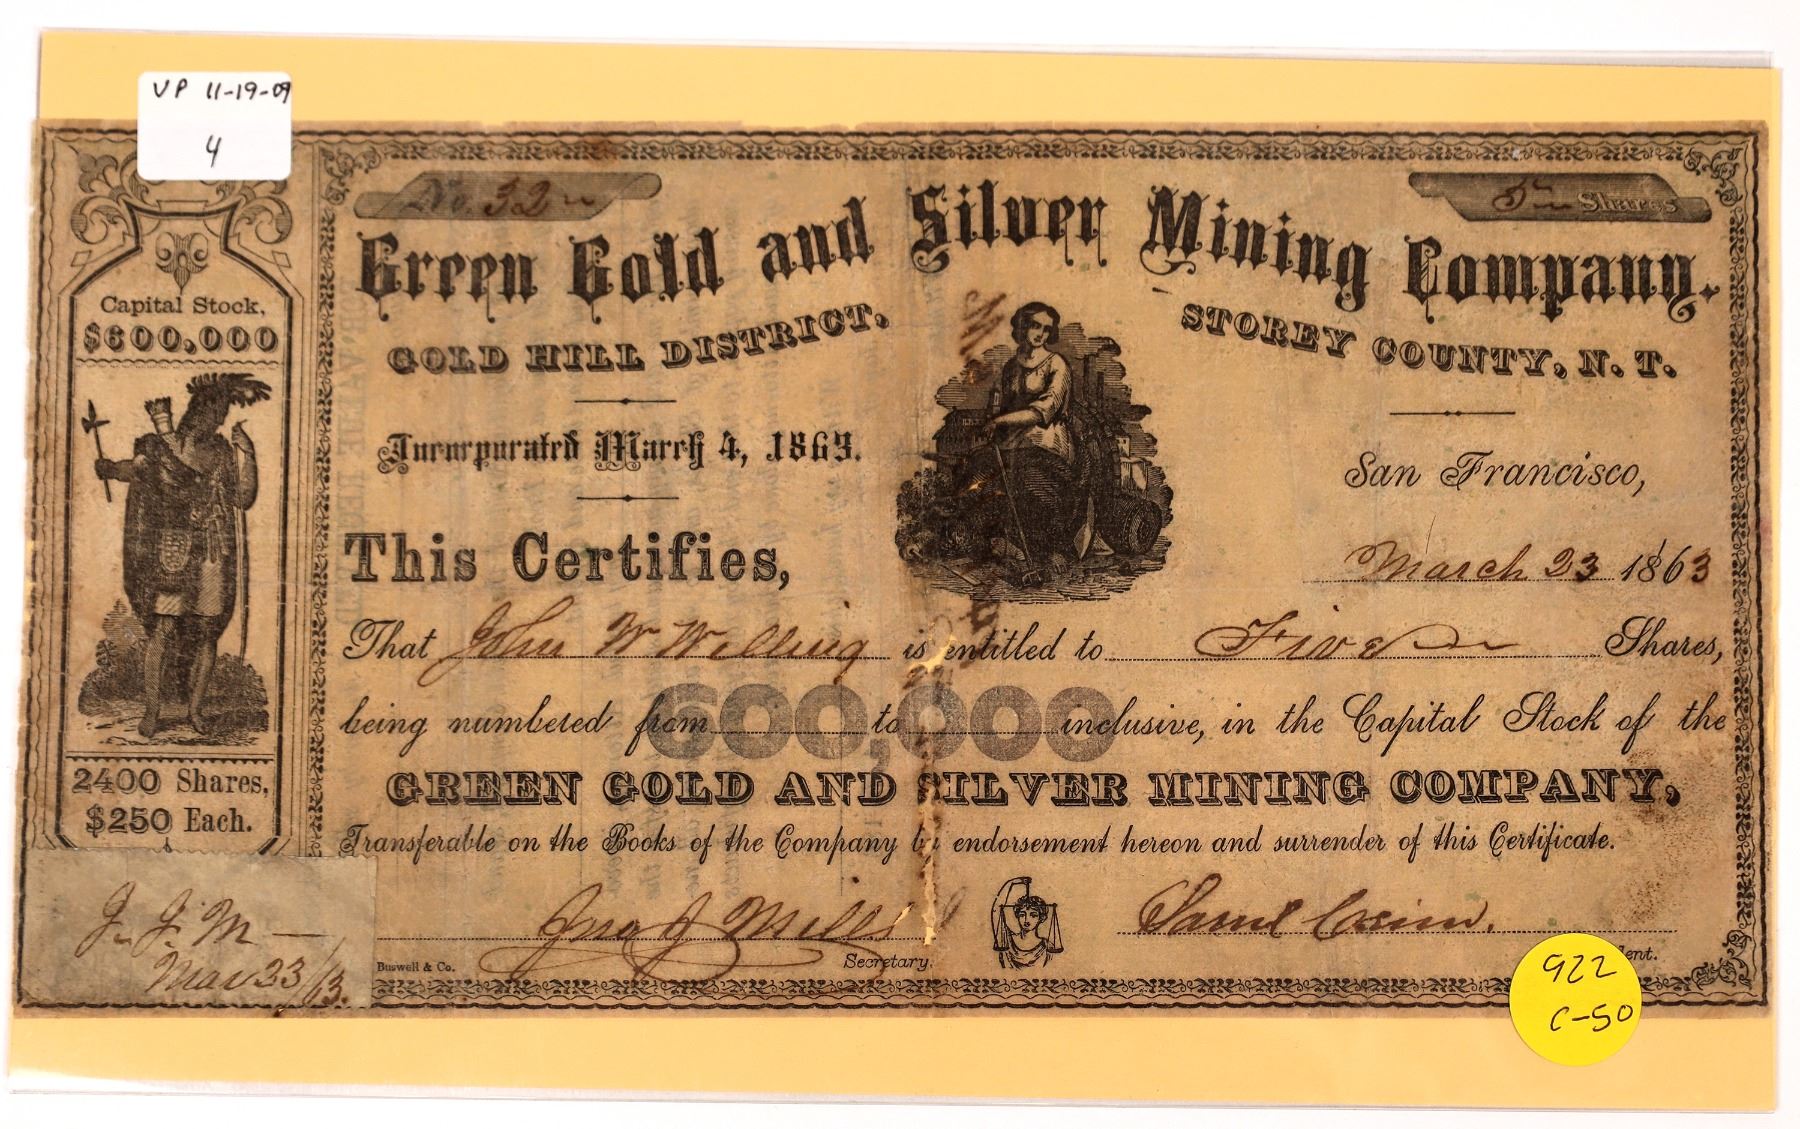 VP 11-19-09
4
No. 32
5 Shares
Green Gold and Silver Mining Company.
GOLD HILL DISTRICT.
STOREY COUNTY, N. T.
Capital Stock,
$600,000
Incorporated March 4, 1863.
San Francisco,
March 23 1863
This Certifies,
That John W Welling is entitled to Five Shares,
being numbered from to inclusive, in the Capital Stock of the
600,000
GREEN GOLD AND SILVER MINING COMPANY,
2400 Shares,
$250 Each.
Transferable on the Books of the Company by endorsement hereon and surrender of this Certificate.
Jno J Mills
Secretary.
Buswell & Co.
922
C-50